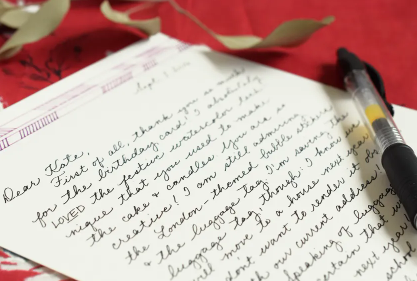 Sept.
Dear Kate,
First of all, thank you so much
for the birthday card! I absolutely
LOVED the festive watercolor tech
nique that you used to make
the cake & candles! You are so
creative! I am still admiring
the London-themed bubble stickers
& the luggage tag. I'm saving the
luggage tag though. I know
will move to a house next year
don't want to render it
our current address
Speaking of luggage
certain that
next year